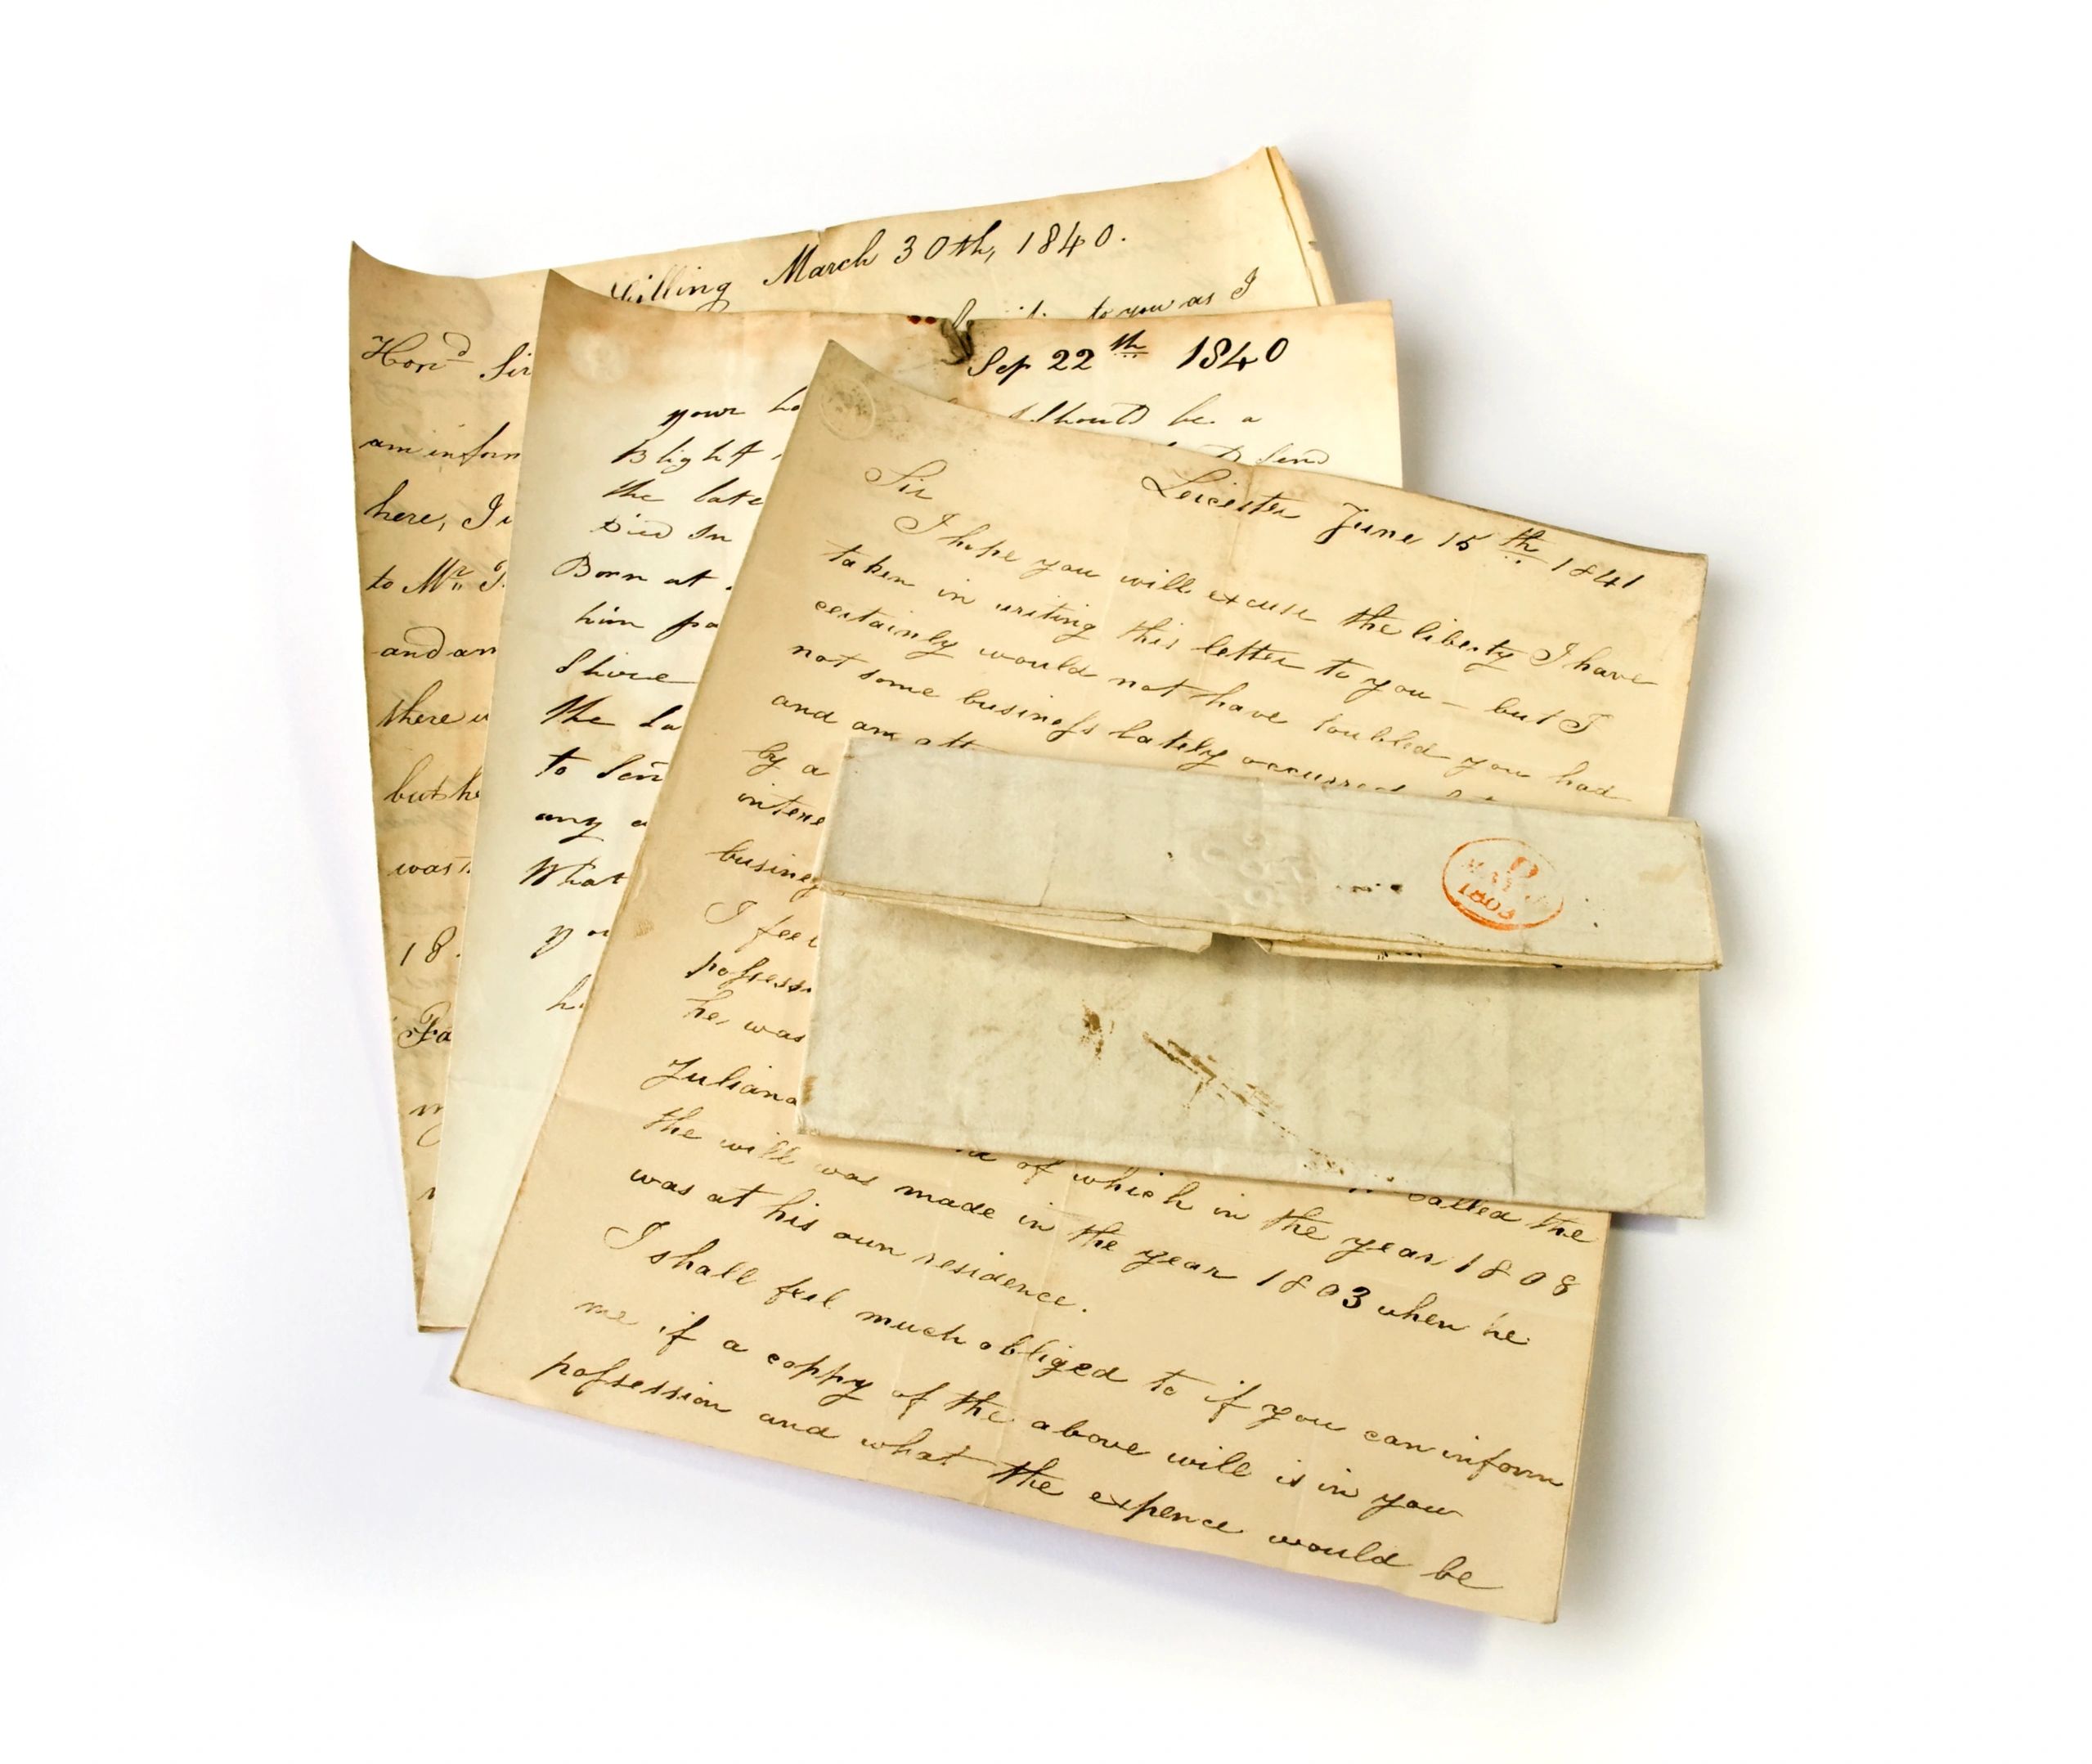 March 30th, 1840.
to you as I
Hon^d Sir
am inform
here, I
to M^r
and am
there
but he
was
18
Fa
Sep 22^th 1840
your ho
should be a
Blight
send
the late
Died In
Born at
him pa
Shire
the La
to Sen
any a
What
yo
h
Leicester June 15^th 1841
Sir
I hope you will excuse the liberty I have
taken in writing this letter to you – but I
certainly would not have toubled you had
not some businefs lately occurred
and am
by a
intere
busine
I fee
pofsess
he was
Juliana
called the
of which in the year 1808
the will was made in the year 1803 when he
was at his own residence.
I shall feel much obliged to if you can inform
me if a coppy of the above will is in your
pofsession and what the expence would be
1803